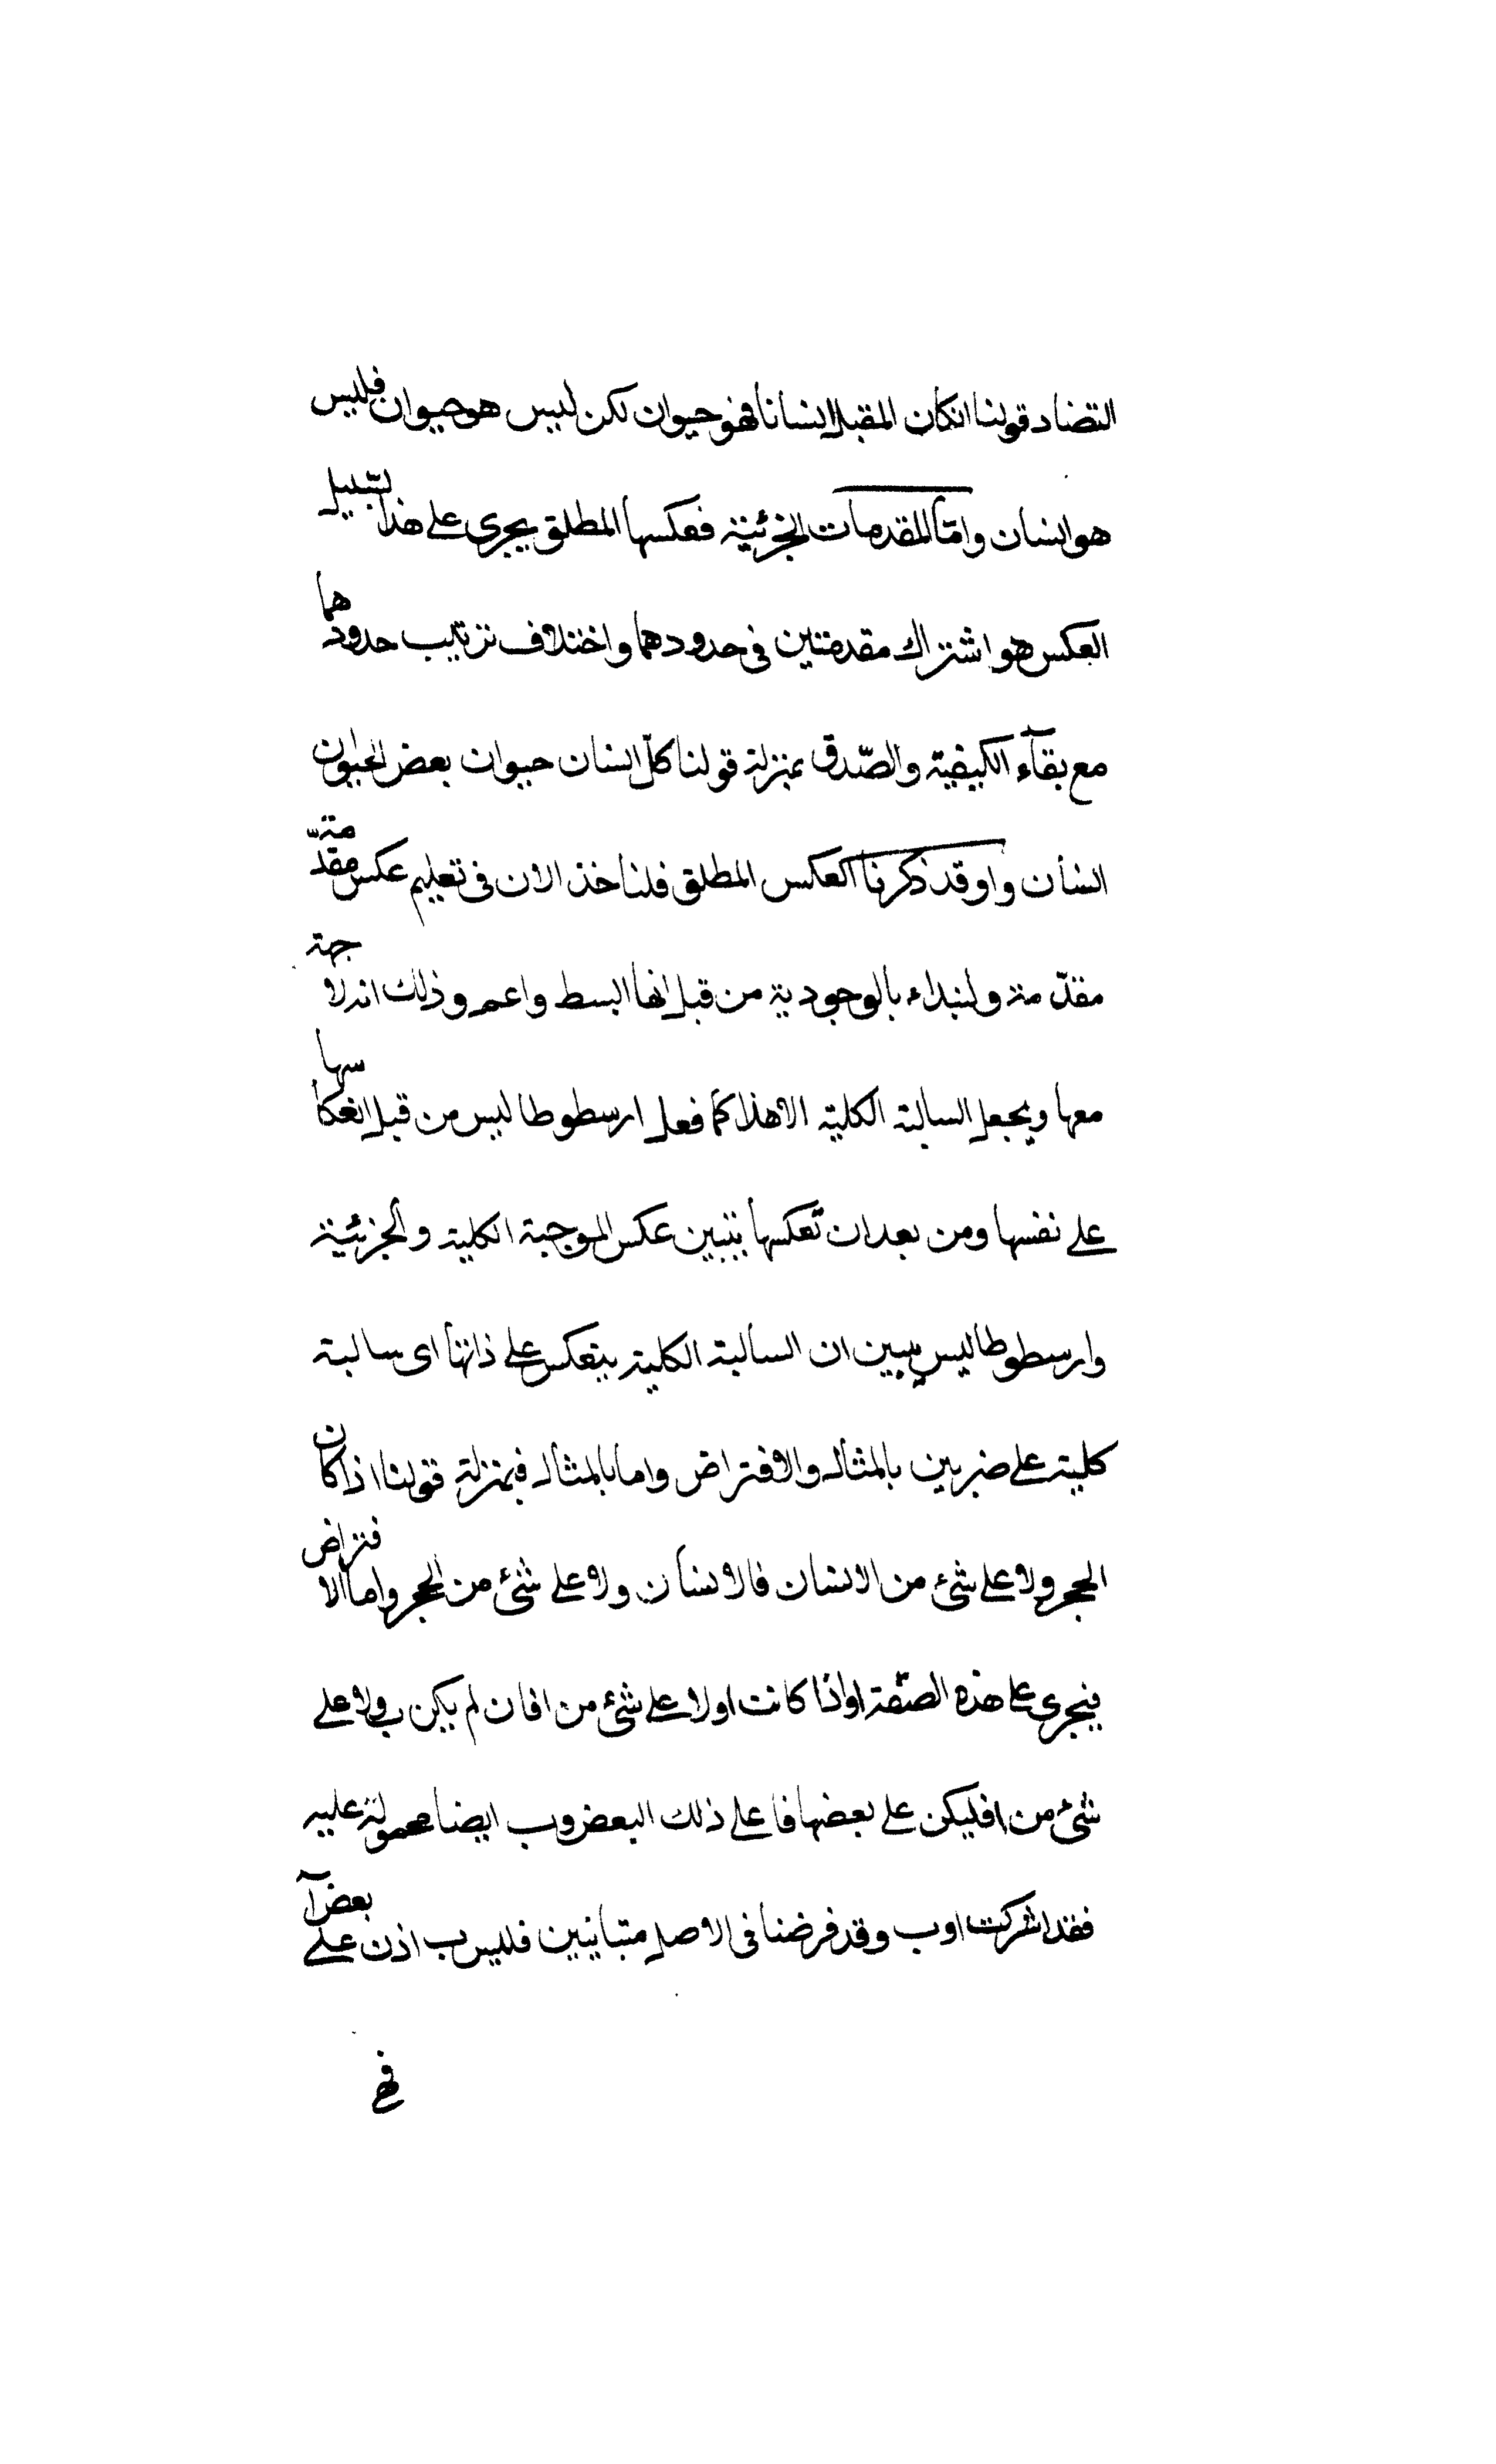 التضاد قولنا انكان المقبل انسانا فهو حيوان لكن ليس هو حيوان فليس
هو انسان واما المقدمات الجزئية فعكسها المطلق يجرى على هذا السبيل
العكس هو اشتراك مقدمتين فى حدودهما واختلاف ترتيب حدودهما
مع بقآء الكيفية والصّدق بمنزلة قولنا كلّ انسان حيوان بعض الحيوان
انسان واو قد ذكرنا العكس المطلق فلناخذ الان فى تعليم عكس مقدّمة
مقدّمة ولنبداء بالوجودية من قبل انها ابسط واعم وذلك انه لا جهة
معها ويجعل السالبة الكلية الاهذا كما فعل ارسطوطاليس من قبل انعكاسها
على نفسها ومن بعد ان تعكسها يتبين عكس الموجبة الكلية والجزئية
وارسطوطاليس يبين ان السالبة الكلية ينعكس على ذاتها اى سالبة
كلية على ضربين بالمثال والافتراض واما بالمثال فبمنزلة قولنا اذا كان
الحجر ولا على شئ من الانسان فالانسان ولا على شئ من الحجر واما الافتراض
فيجرى على هذه الصّفة اواذا كانت اولا على شئ من ا فان لم يكن ب ولا على
شئ من ا فليكن على بعضها فا على ذلك البعض وب ايضا محمولة عليه
فقد اشركت ا وب وقد فرضنا فى الاصل متباينين فليس ب اذن على بعض آ
فهى